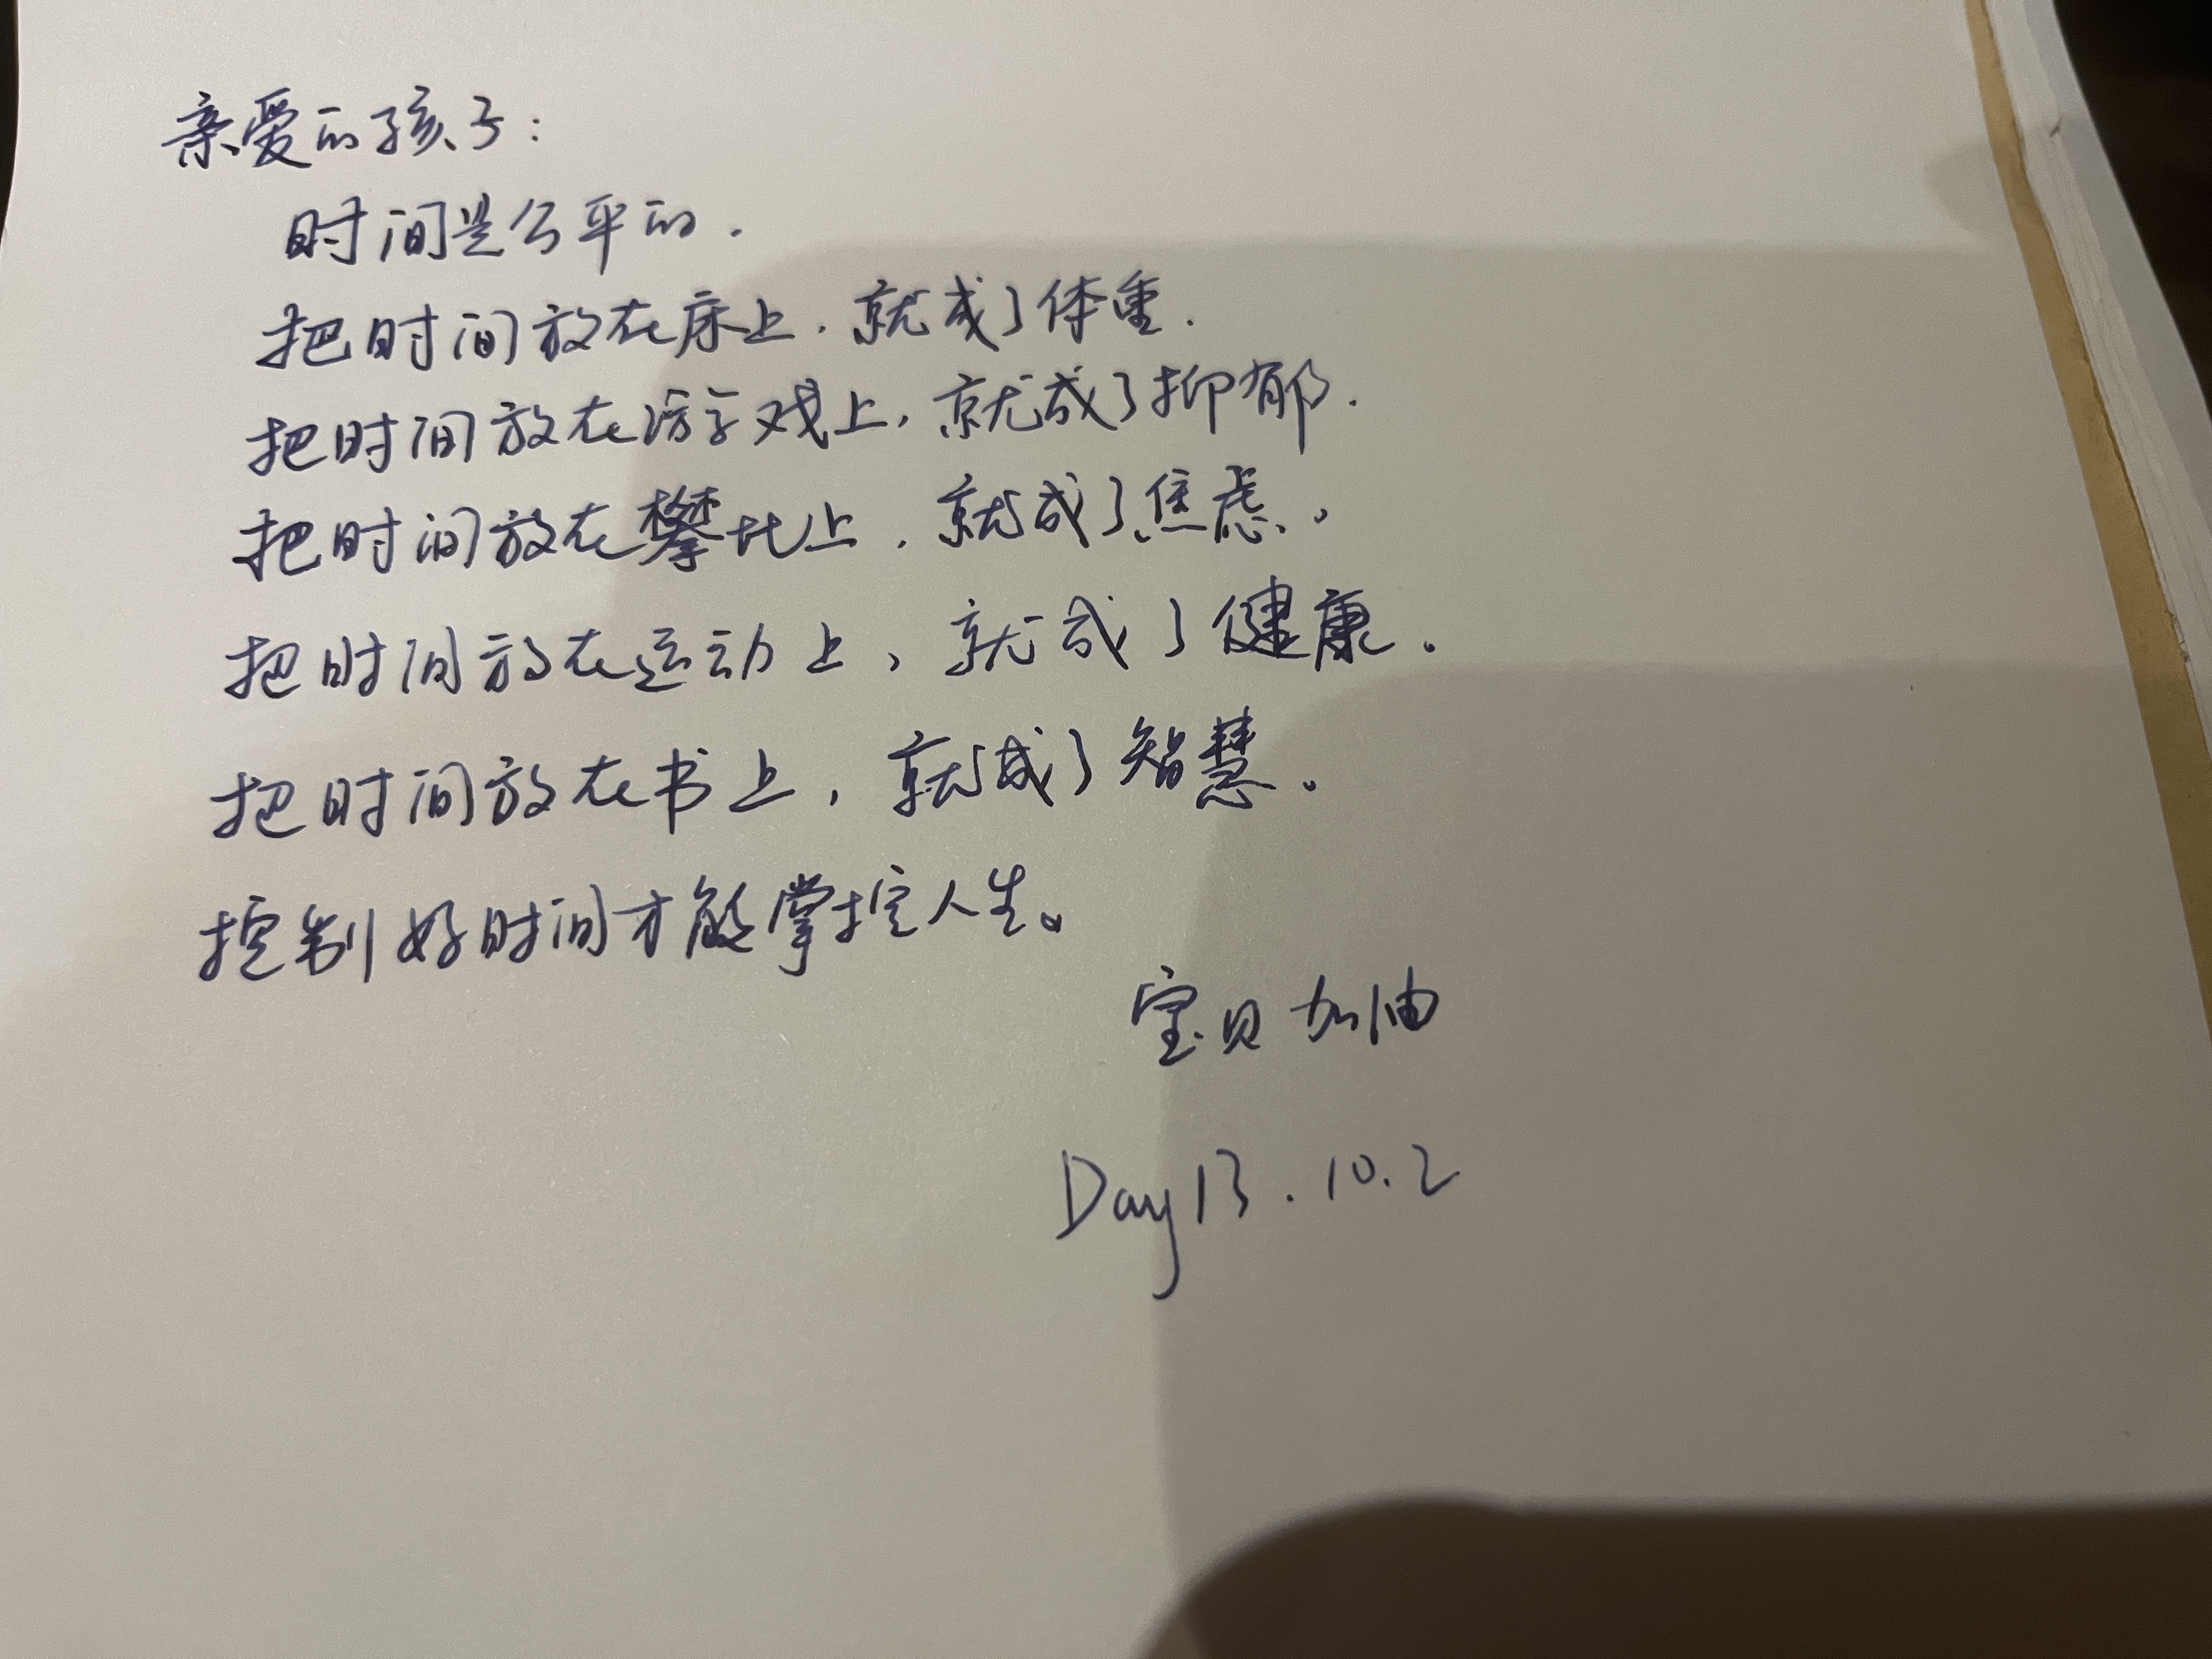 亲爱的孩子:
时间是公平的.
把时间放在床上.就成了体重.
把时间放在游戏上,就成了抑郁.
把时间放在攀比上.就成了焦虑。
把时间放在运动上、就成了健康.
把时间放在书上,就成了智慧。
控制好时间才能掌控人生。
宝贝加油
Day13.10.2